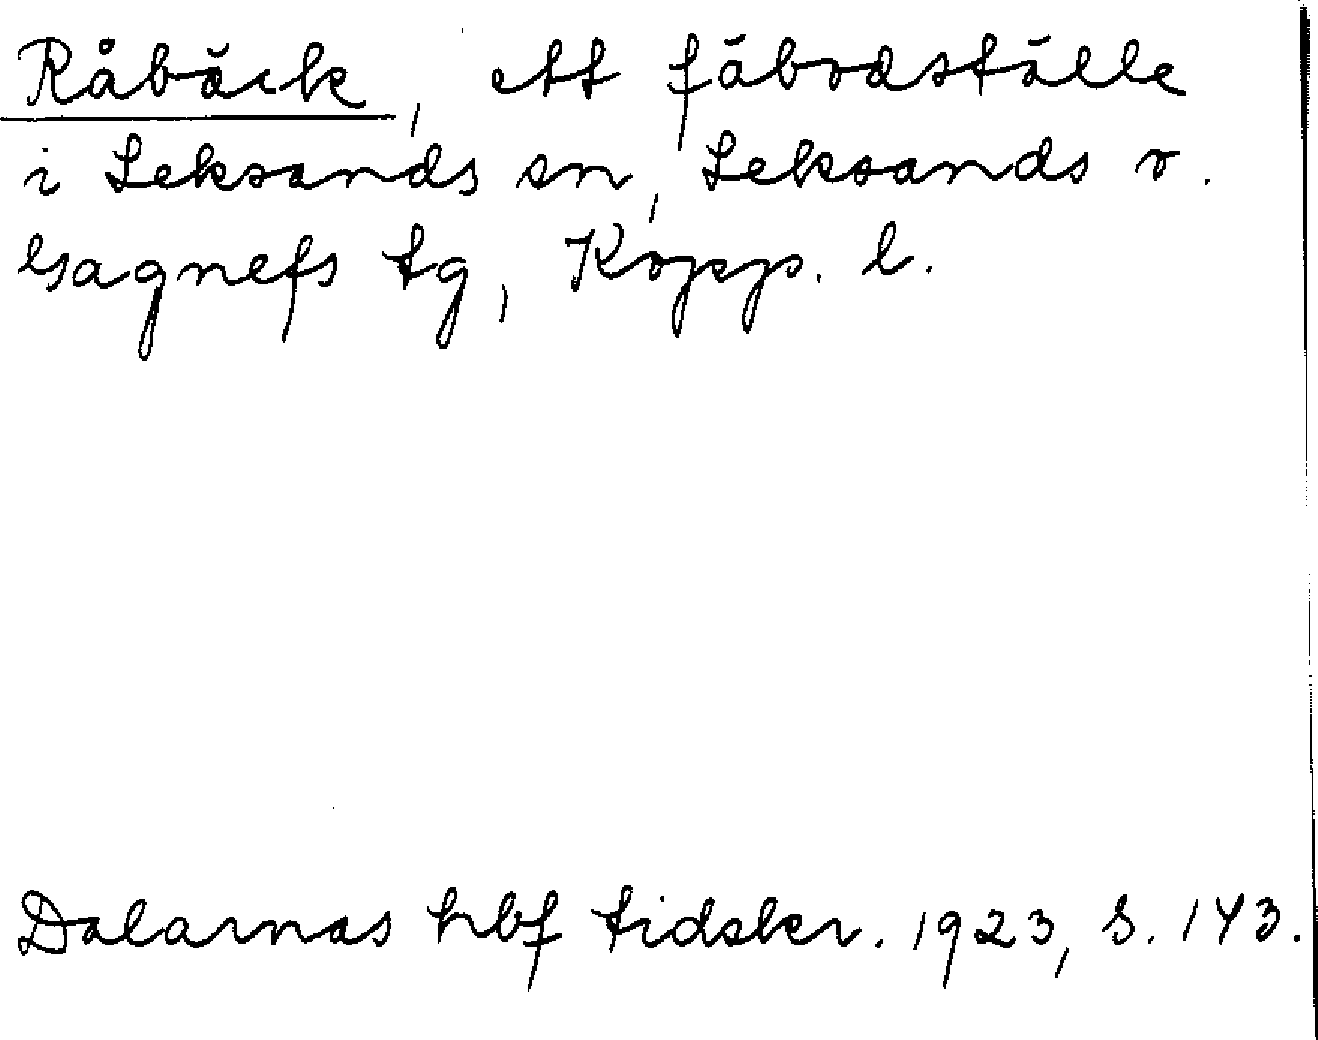 Råbäck, ett fäbodställe
i Leksands sn, Leksands o.
Gagnefs tg, Kopp. l.
Dalarnas hbf tidskr. 1923, S. 143.